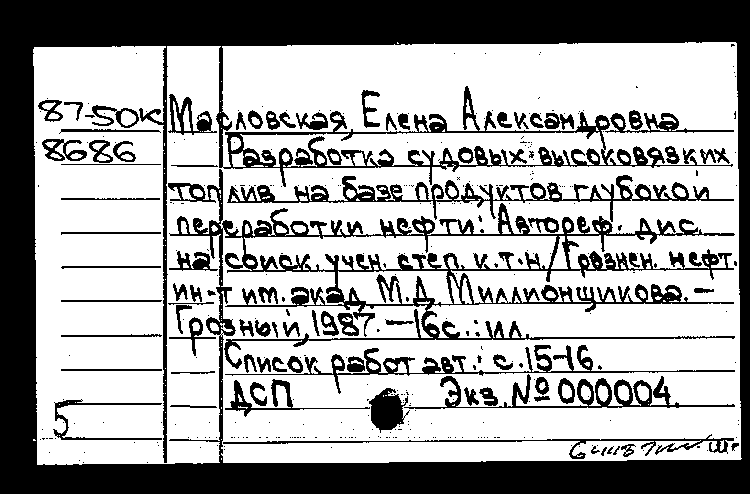 87-50К Масловская, Елена Александровна.
8686 Разработка судовых высоковязких
топлив на базе продуктов глубокой
переработки нефти: Автореф. дис.
на соиск. учен. степ. к.т.н./Грознен. нефт.
ин-т им. акад. М.Д. Миллионщикова. —
Грозный, 1987. — 16с.: ил.
Список работ авт.: с. 15-16.
ДСП Экз. № 000004.
5